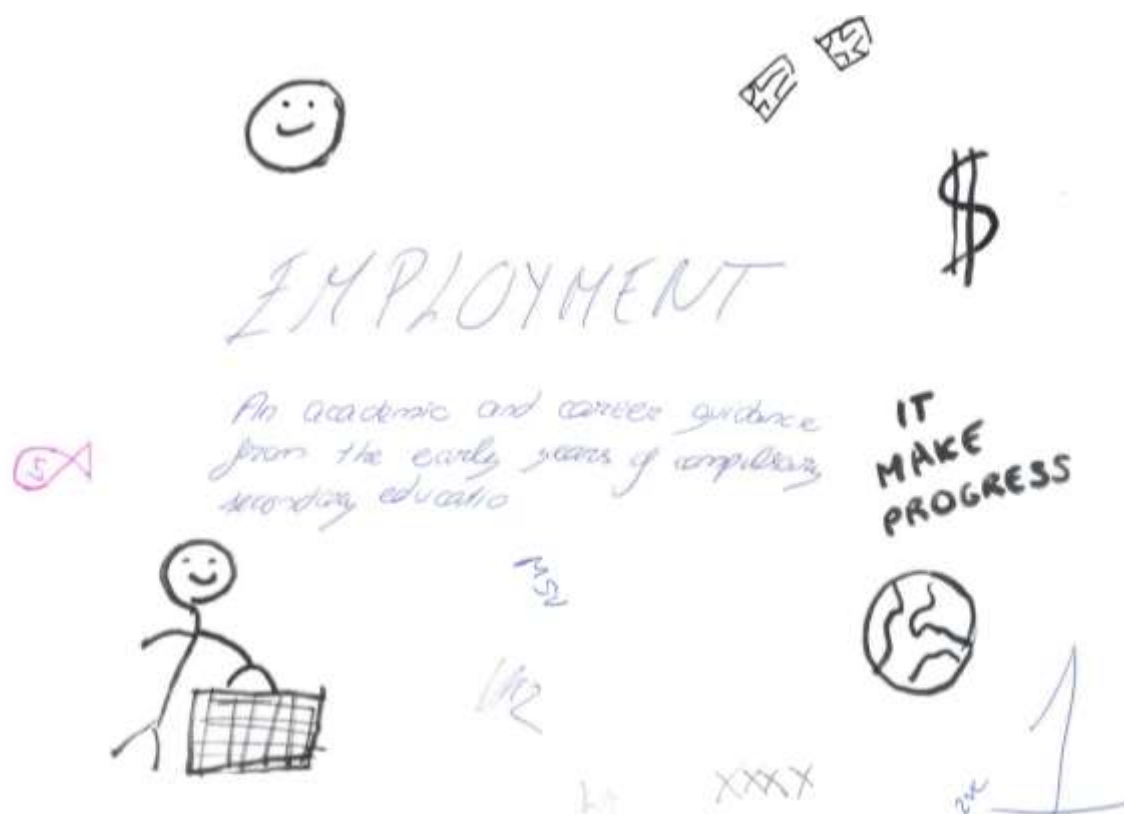 $
EMPLOYMENT
An academic and career guidance
from the early years of compulsory
secondary educatio
IT
MAKE
PROGRESS
5
XXXX
1